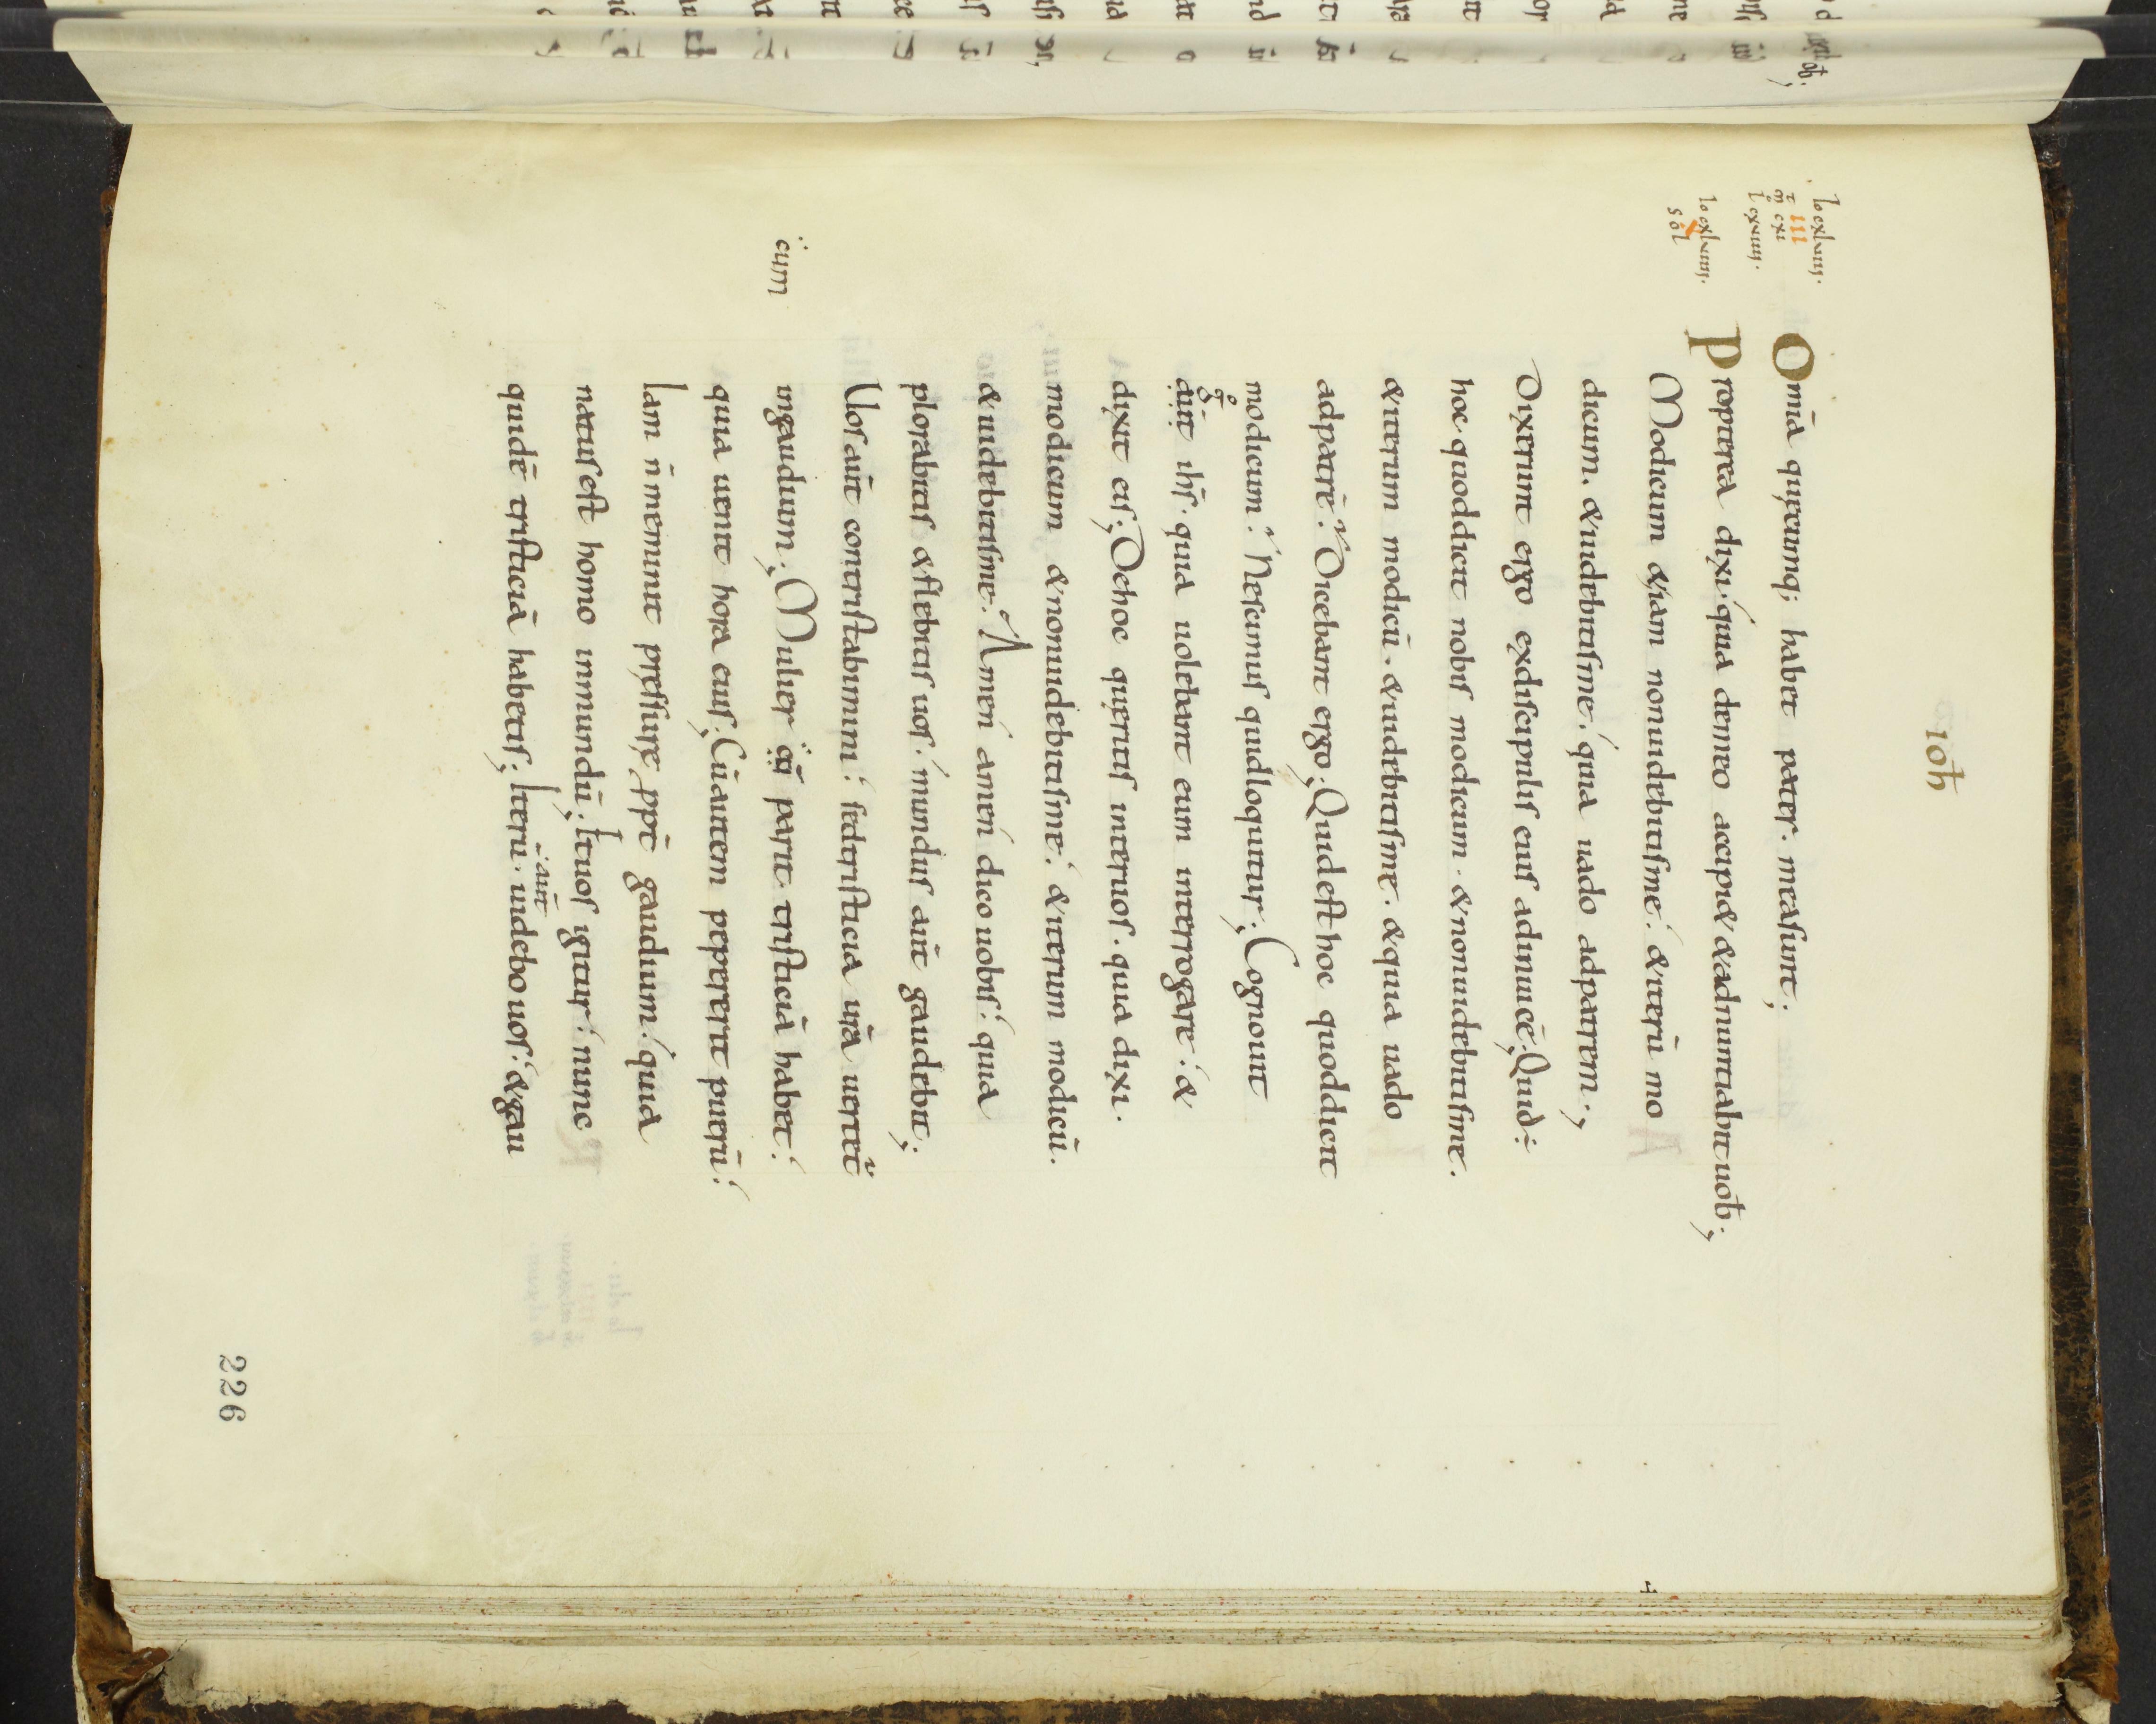 ioħ
Io cxlviii.
III
m̄ cxi
l cxviiii.
Io cxlviiii.
sol
Om̄a quęcumq; habet pater. mea sunt;
Propterea dixi. quia demeo accipi& &adnuntiabit uob;
Modicum &iam nonuidebitis me. &iterū mo
dicum. &uidebitis me. quia uado adpatrem.,
Dixerunt ergo exdiscipulis eius adinuicē; Quid ÷
hoc quoddicit nobis modicum. &nonuidebitis me.
&iterum modicū. &uidebitis me. &quia uado
adpatrē? Dicebant ergo; Quid est hoc quoddicit
modicum? Nescimus quidloquitur; Cognouit
g̊
aut̄ ih̄s. quia uolebant eum interrogare. &
dixit eis; Dehoc queritis interuos. quia dixi.
modicum &nonuidebitis me. &iterum modicū.
&uidebitis me? Amen amen dico uobis. quia
plorabitis &flebitis uos. mundus aut̄ gaudebit;
Uos aut̄ contristabimini. sedtristicia ur̄a uertet̄
cum
ingaudium; Mulier cū parit. tristiciā habet.
quia uenit hora eius; Cūautem pepererit puerū.
Iam n̄ meminit pressurę ppt̄ gaudium. quia
natus est homo inmundū; Etuos igitur. nunc
aut̄
quidē tristiciā habetis; Iterū. uidebo uos. &gau
226